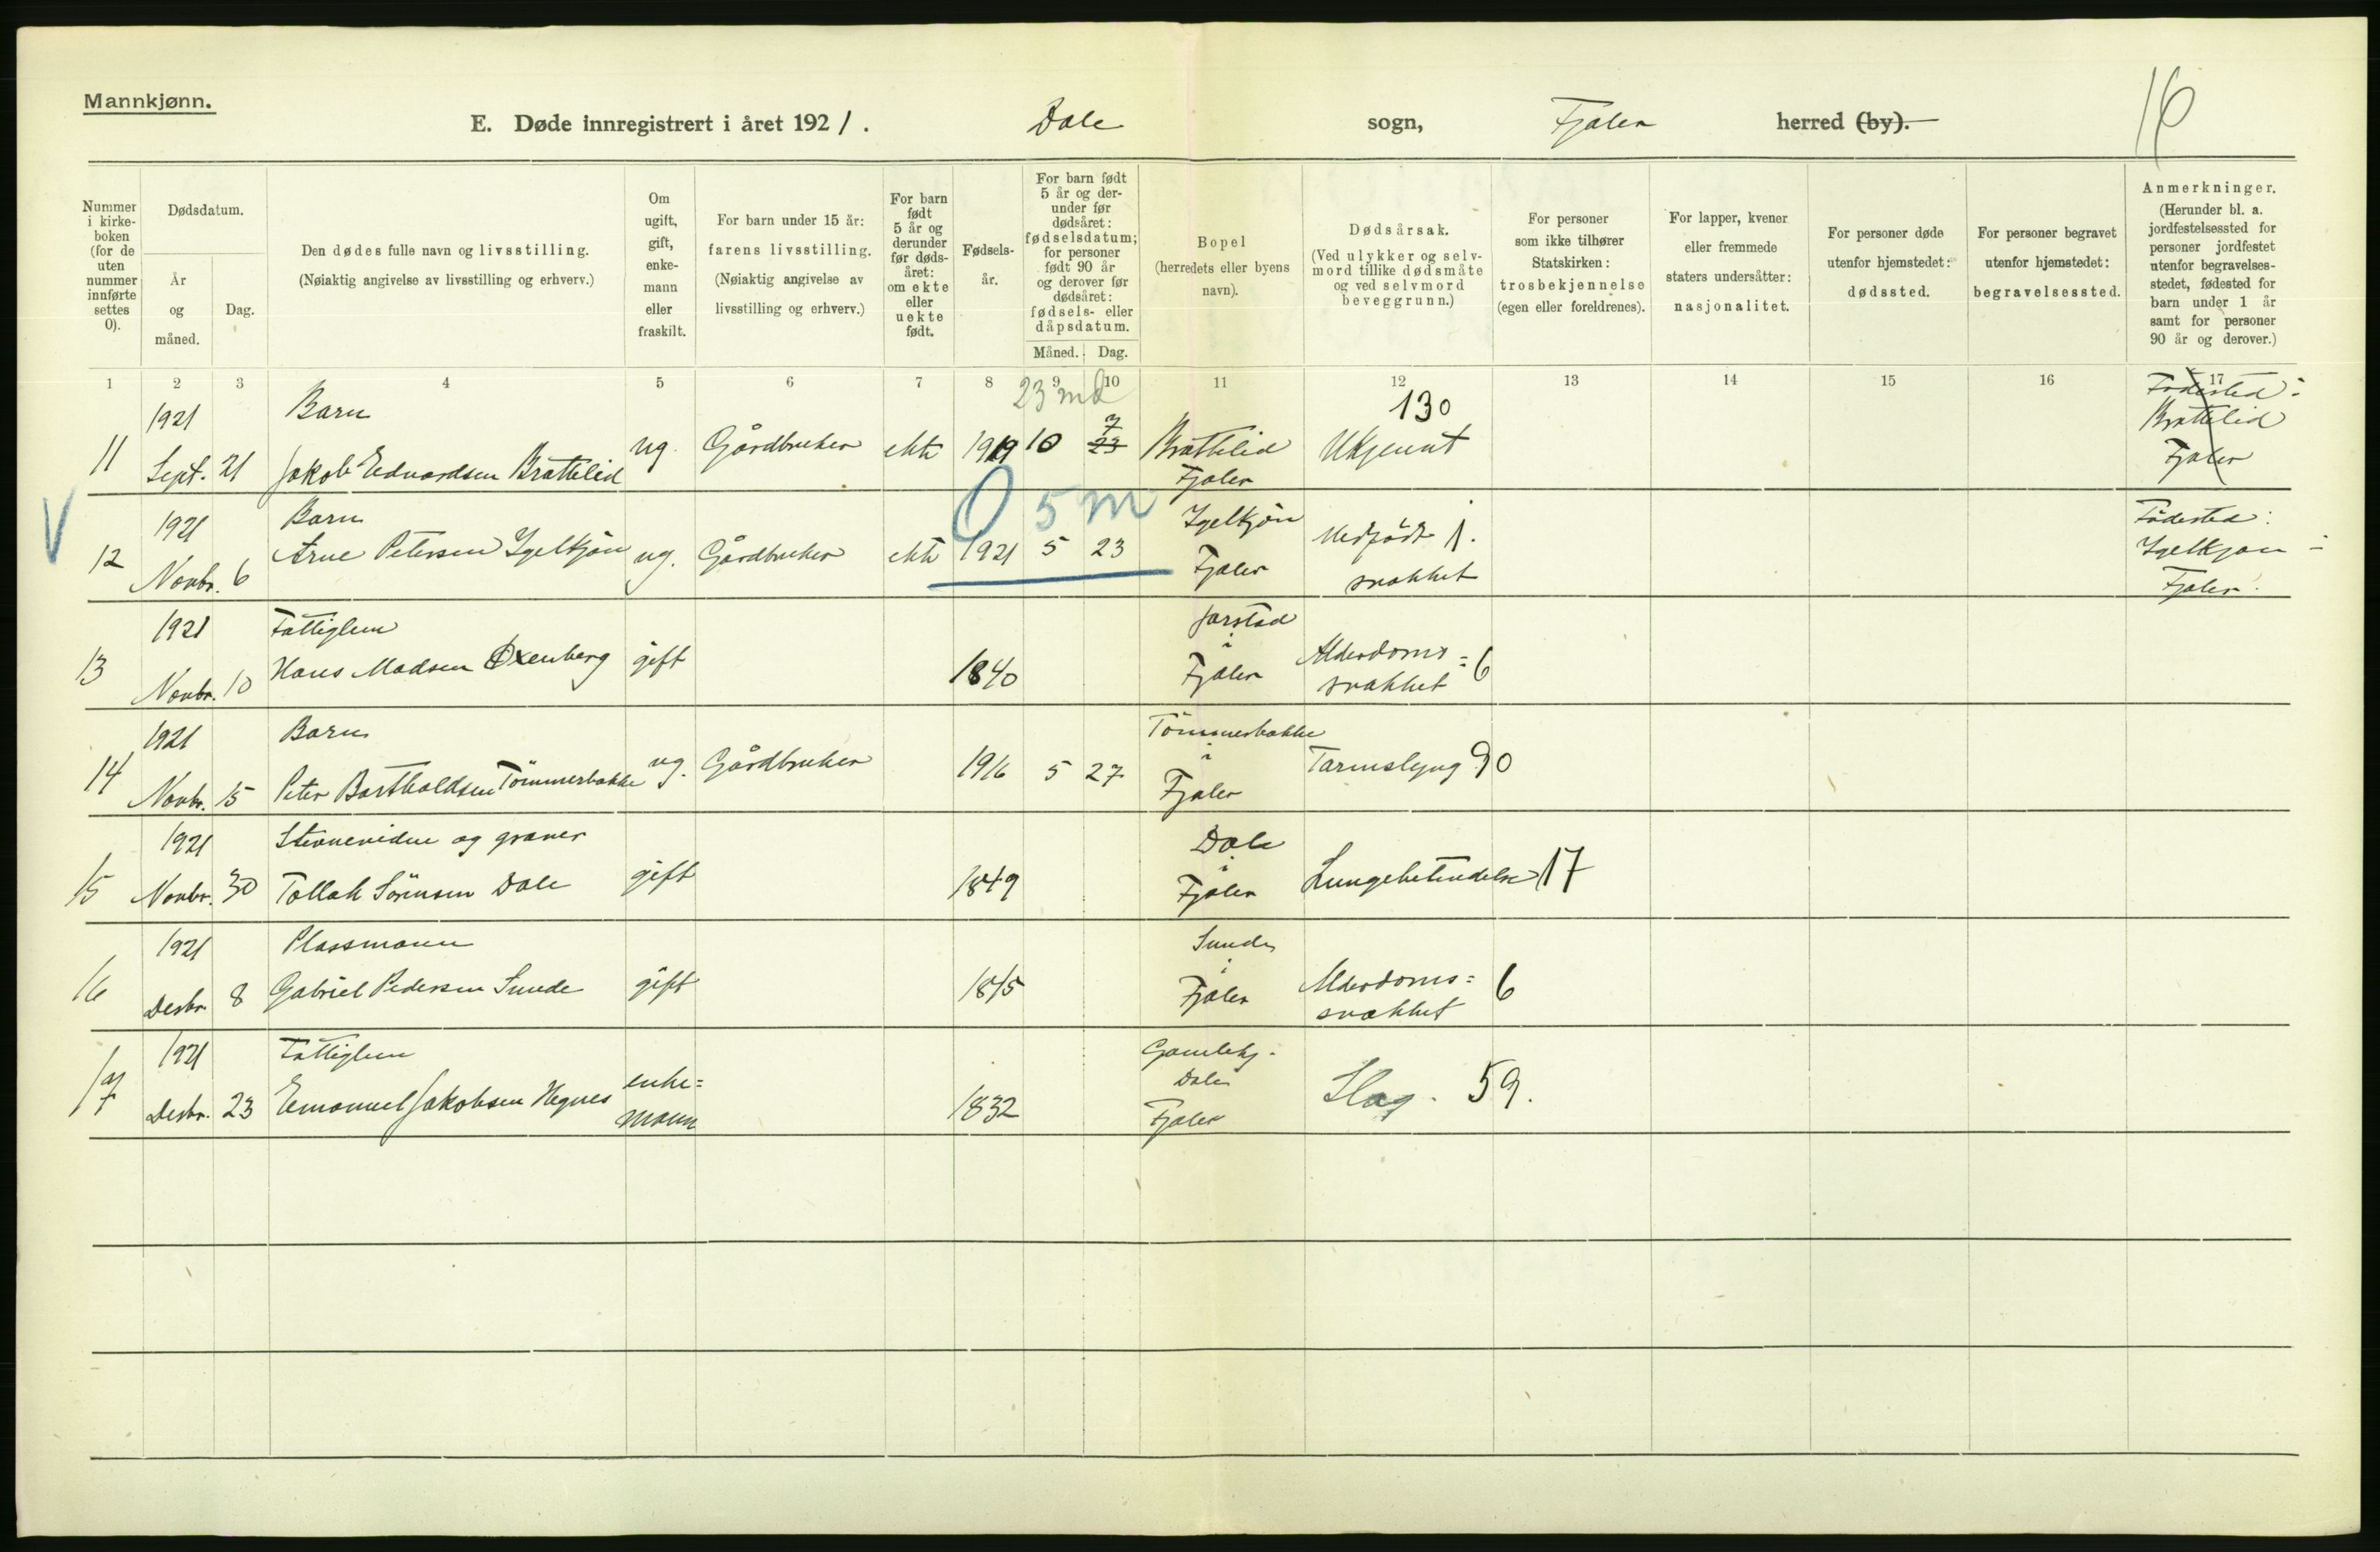 Mannkjønn.
E. Døde innregistrert i året 1921. Dale sogn, Fjaler herred (by).
16
Nummer i kirke-boken (for de uten nummer innførte settes 0).
Dødsdatum.
År og måned.
Dag.
Den dødes fulle navn og livsstilling.
(Nøiaktig angivelse av livsstilling og erhverv.)
Om ugift, gift, enke-mann eller fraskilt.
For barn under 15 år: farens livsstilling.
(Nøiaktig angivelse av livsstilling og erhverv.)
For barn født 5 år og derunder før døds-året: om ekte eller uekte født.
Fødsels-år.
For barn født 5 år og der-under før dødsåret: fødselsdatum; for personer født 90 år og derover før dødsåret: fødsels- eller dåpsdatum.
Måned. Dag.
Bopel (herredets eller byens navn).
Dødsårsak.
(Ved ulykker og selv-mord tillike dødsmåte og ved selvmord beveggrunn.)
For personer som ikke tilhører Statskirken: trosbekjennelse (egen eller foreldrenes).
For lapper, kvener eller fremmede staters undersåtter: nasjonalitet.
For personer døde utenfor hjemstedet: dødssted.
For personer begravet utenfor hjemstedet: begravelsessted.
Anmerkninger.
(Herunder bl. a. jordfestelsessted for personer jordfestet utenfor begravelses-stedet, fødested for barn under 1 år samt for personer 90 år og derover.)
1 2 3 4 5 6 7 8 9 10 11 12 13 14 15 16 17
23 md
1921 Barn 7 130 Fødested:
11 Sept. 21 Jakob Edvardsen Brattelid ug. Gårdbruker ekte 1919 10 23 Brattelid Ukjennt Brattelid
Fjaler Fjaler
V 0 5 m
1921 Barn Igelkjøn Medfødt 1. Födested:
12 Novbr. 6 Arne Petersen Igelkjøn ug. Gårdbruker ekte 1921 5 23 Fjaler svakhet Igelkjøn -
Fjaler.
1921 Fattiglem Jarstad
i
13 Novbr. 10 Hans Madsen Oxenberg gift 1840 Fjaler Alderdoms=
svakhet 6
1921 Barn Tömmerbakke
i
14 Novbr. 15 Peter Bartholdsen Tömmerbakke ug. Gårdbruker 1916 5 27 Fjaler Tarmslyng 90
1921 Stevnevidne og graver Dale
i
15 Novbr. 30 Tollak Sörensen Dale gift 1849 Fjaler Lungebetendelse 17
1921 Plassmann Sunde
i
16 Desbr. 8 Gabriel Pedersen Sunde gift 1845 Fjaler Alderdoms=
svakhet 6
1921 Fattiglem Gamlehj.
Dale
17 Desbr. 23 Emanuel Jakobsen Hegnes enke=
mann 1832 Fjaler Slag. 59.